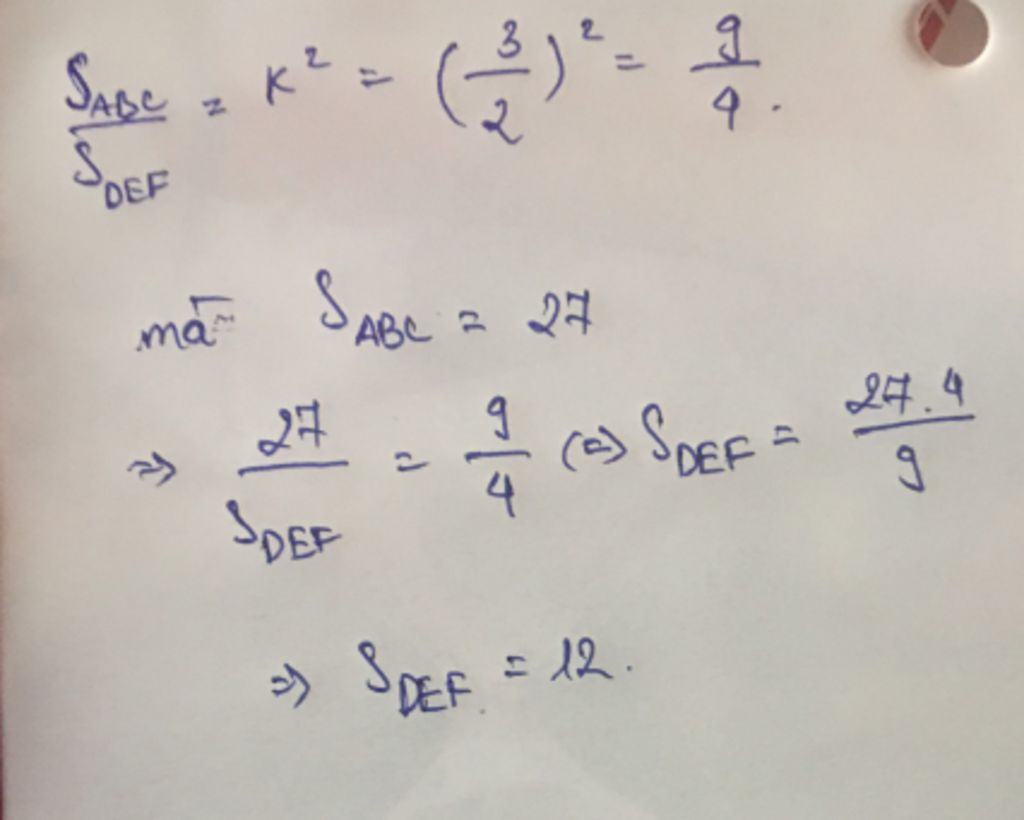 S_ABC / S_DEF = K² = (3/2)² = 9/4.
mà S_ABC = 27
=> 27 / S_DEF = 9/4 (=) S_DEF = 27.4 / 9
=> S_DEF = 12.